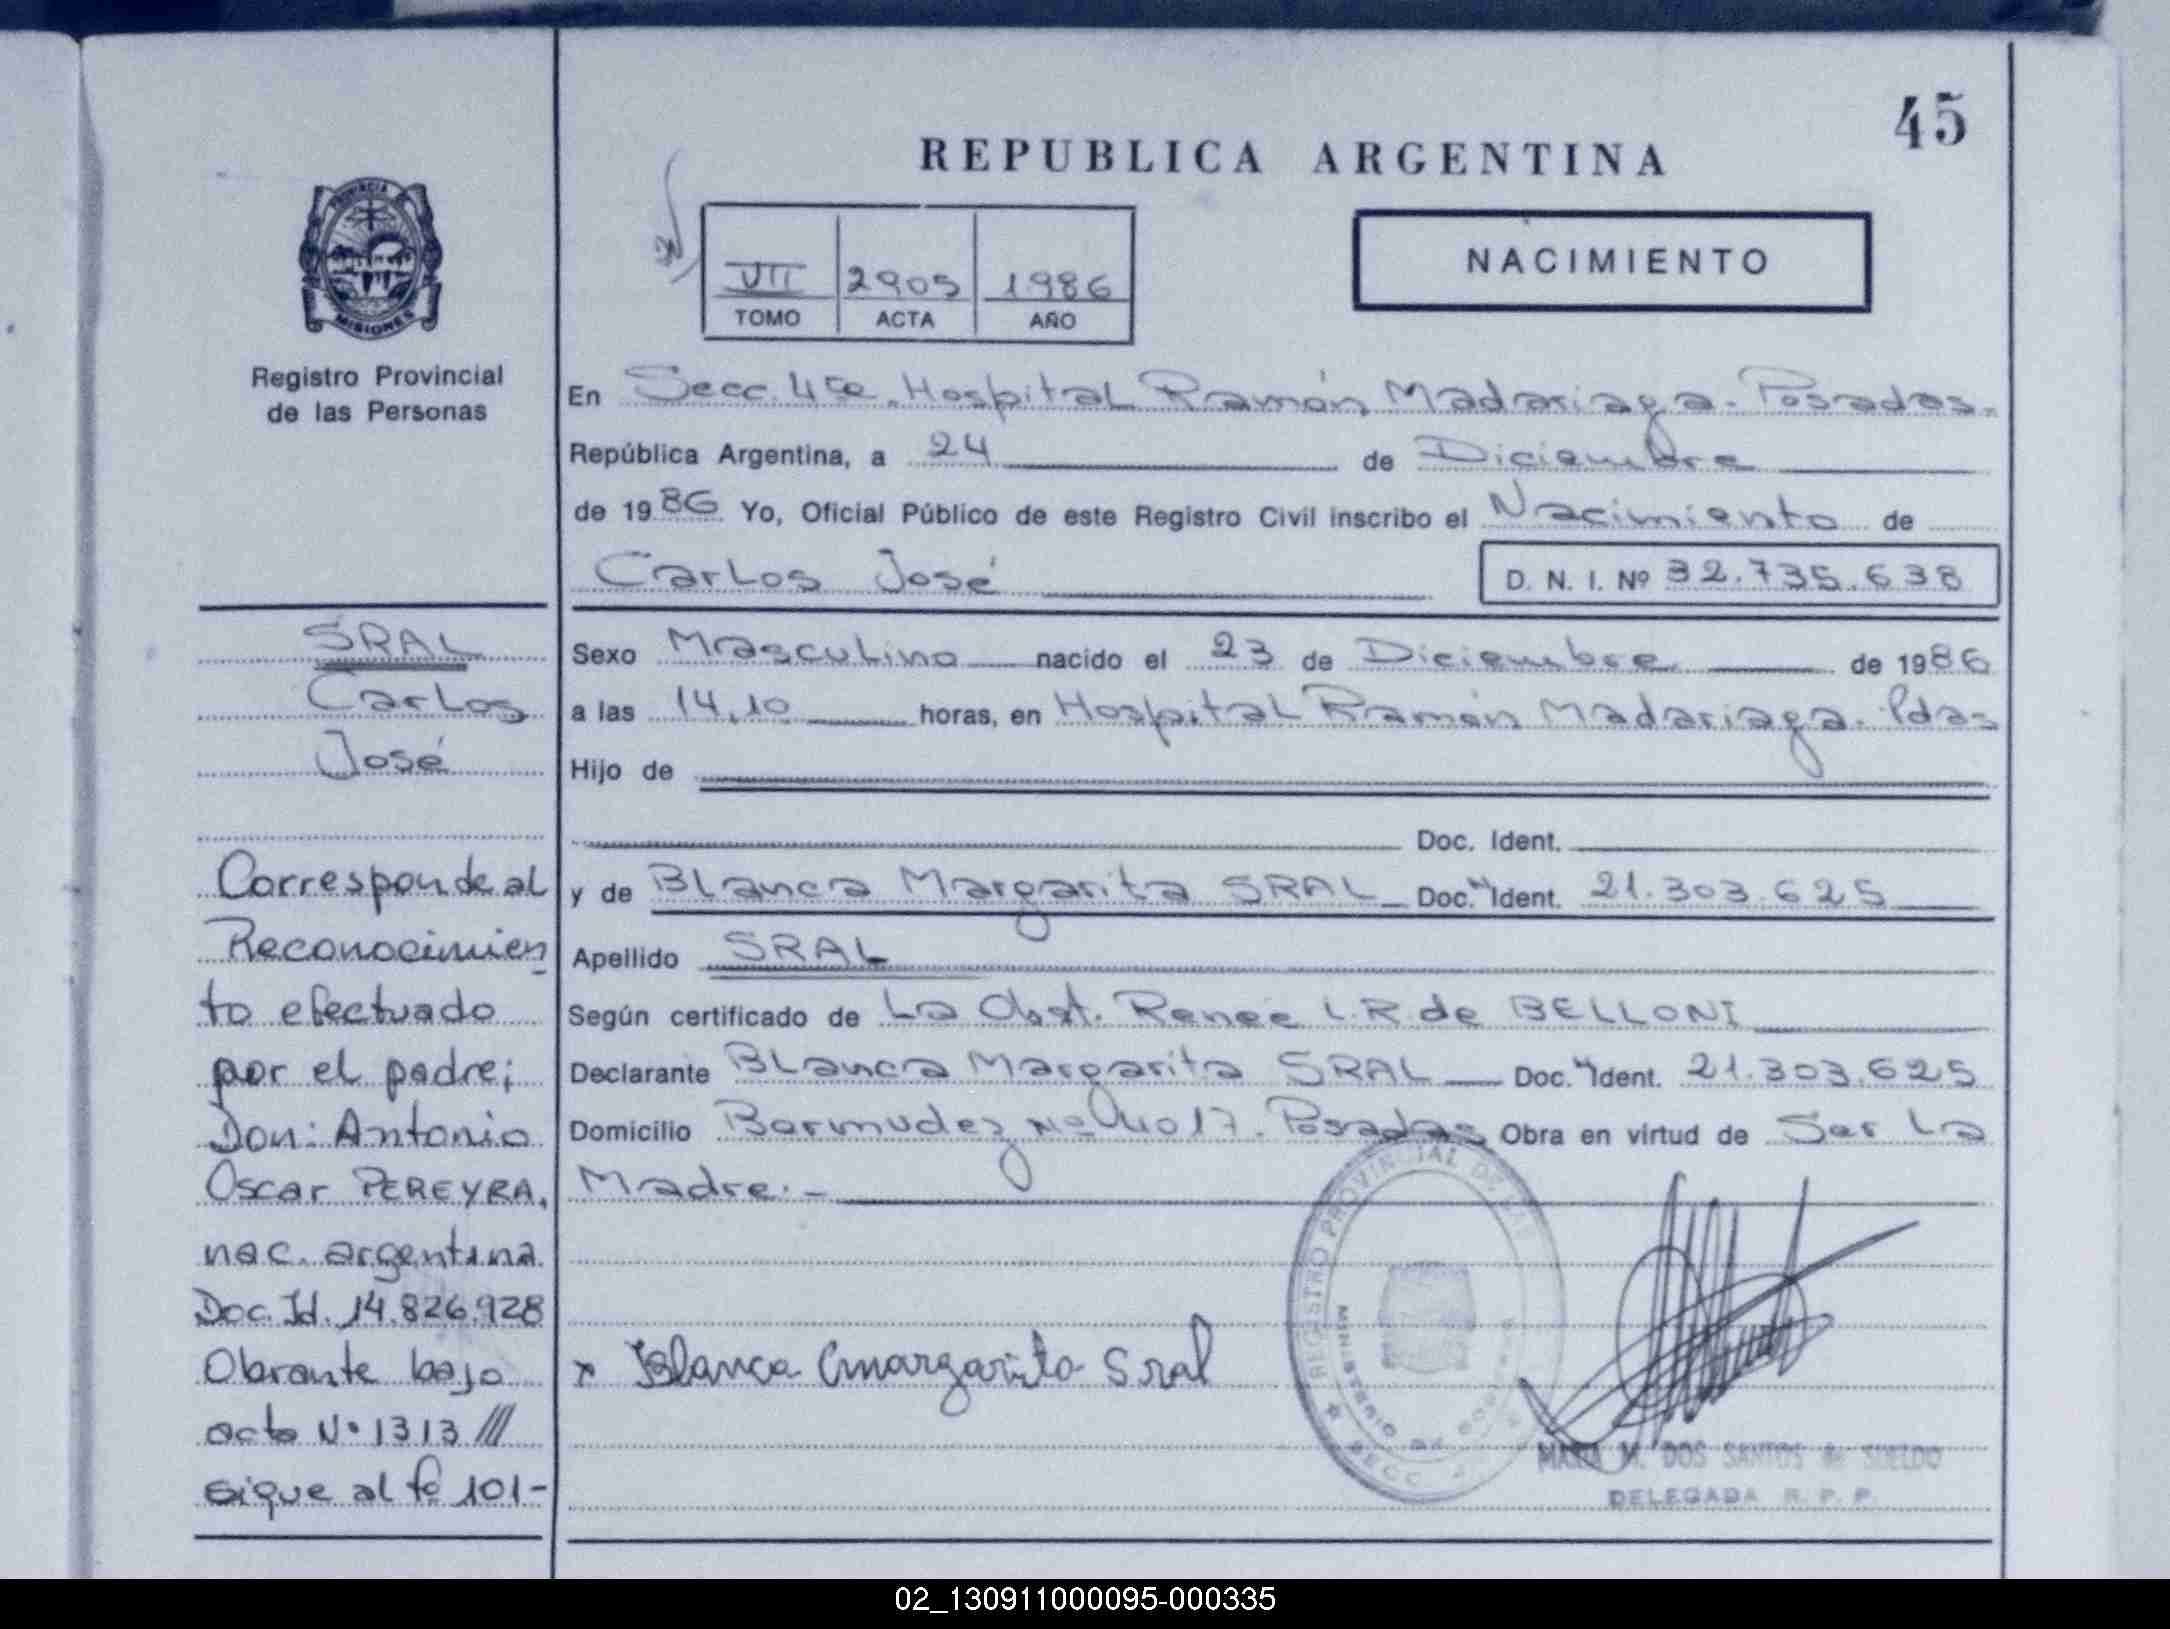 45
REPUBLICA ARGENTINA
NACIMIENTO
VII 2905 1986
TOMO ACTA AÑO
PROVINCIA DE
MISIONES
Registro Provincial
de las Personas
En Secc. 4ta. Hospital Ramón Madariaga - Posadas.
República Argentina, a 24 de Diciembre
de 1986 Yo, Oficial Público de este Registro Civil inscribo el Nacimiento de
Carlos José D. N. I. Nº 32.735.638
Sexo Masculino nacido el 23 de Diciembre de 1986
a las 14,10 horas, en Hospital Ramón Madariaga. Pdas
Hijo de
Doc. Ident.
y de Blanca Margarita SRAL Doc. Ident. 21.303.625
Apellido SRAL
Según certificado de La Obst. Renee L.R. de BELLONI
Declarante Blanca Margarita SRAL Doc. Ident. 21.303.625
Domicilio Bermudez Nº 4017. Posadas Obra en virtud de Ser La
Madre.-
x Blanca Margarita Sral
REGISTRO PROVINCIAL DE LAS
MINISTERIO DE GOBIERNO
SECC. 4
M. DOS SANTOS de SUELDO
DELEGADA R. P. P.
SRAL
Carlos
José
Corresponde al
Reconocimien
to efectuado
por el padre;
Don: Antonio
Oscar PEREYRA,
nac. argentina.
Doc. Id. 14.826.928
Obrante bajo
acta Nº 1313 ///
sigue al fº 101-
02_130911000095-000335